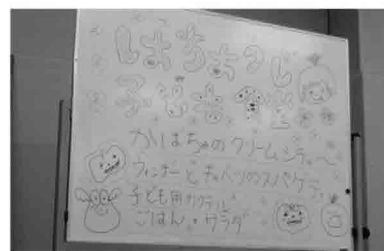 はちおうじ
子ども食堂
かぼちゃのクリームシチュー
ウィンナーとキャベツのスパゲティ
子ども用カクテル
ごはん・サラダ